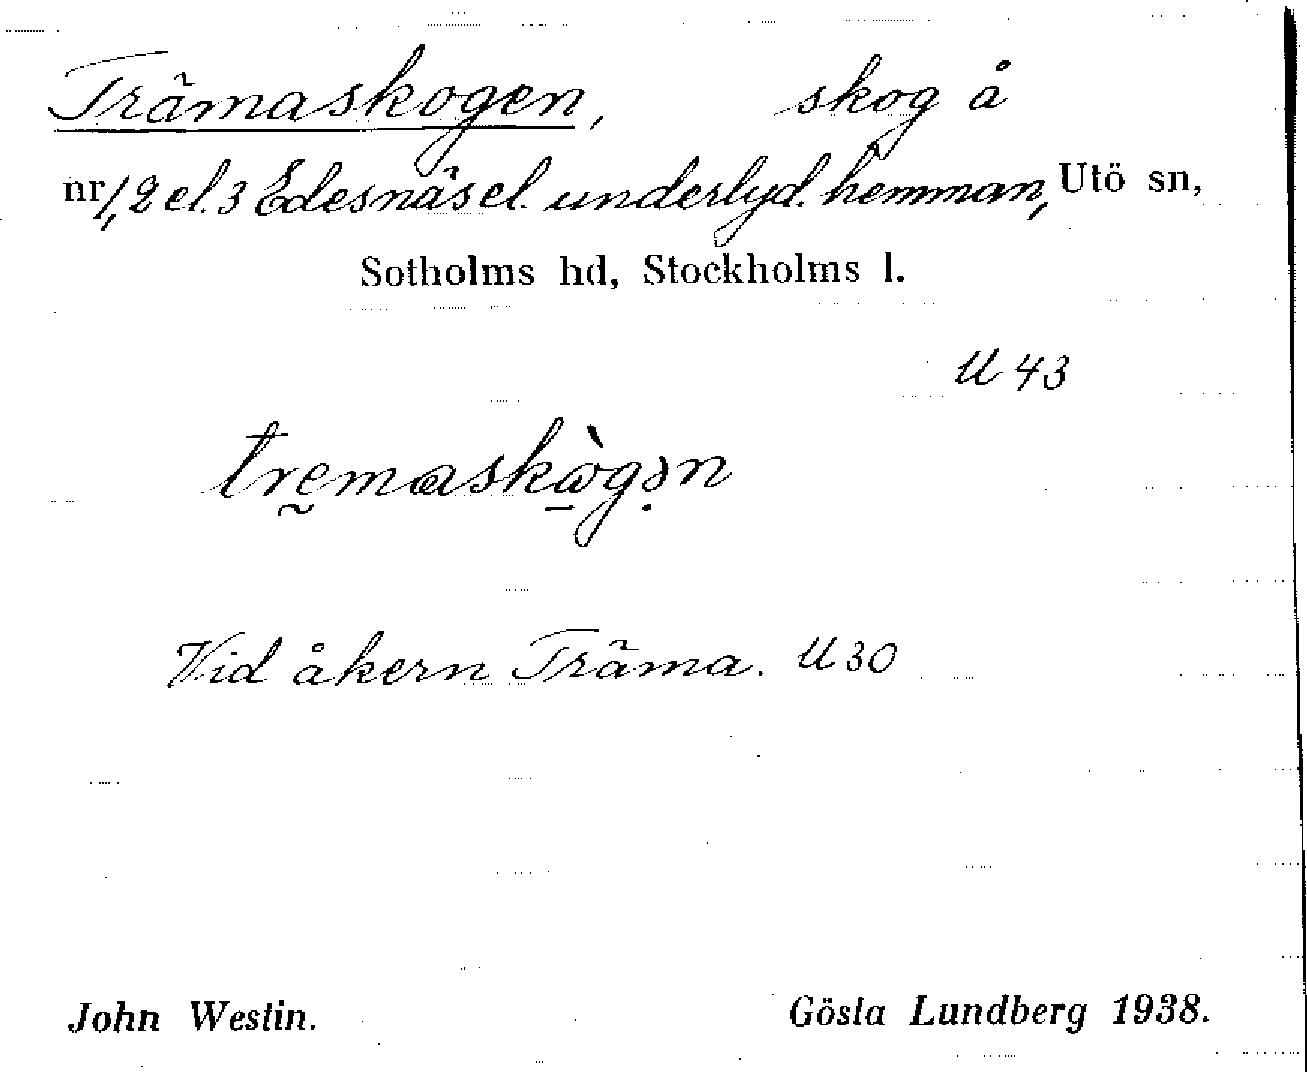 Trämaskogen, skog å
nr 1, 2 el. 3 Edesnäs el. underlyd. hemman, Utö sn,
Sotholms hd, Stockholms l.
U 43
trḛmaskὼ̱gə̣n
Vid åkern Träma. U 30
John Westin. Gösta Lundberg 1938.